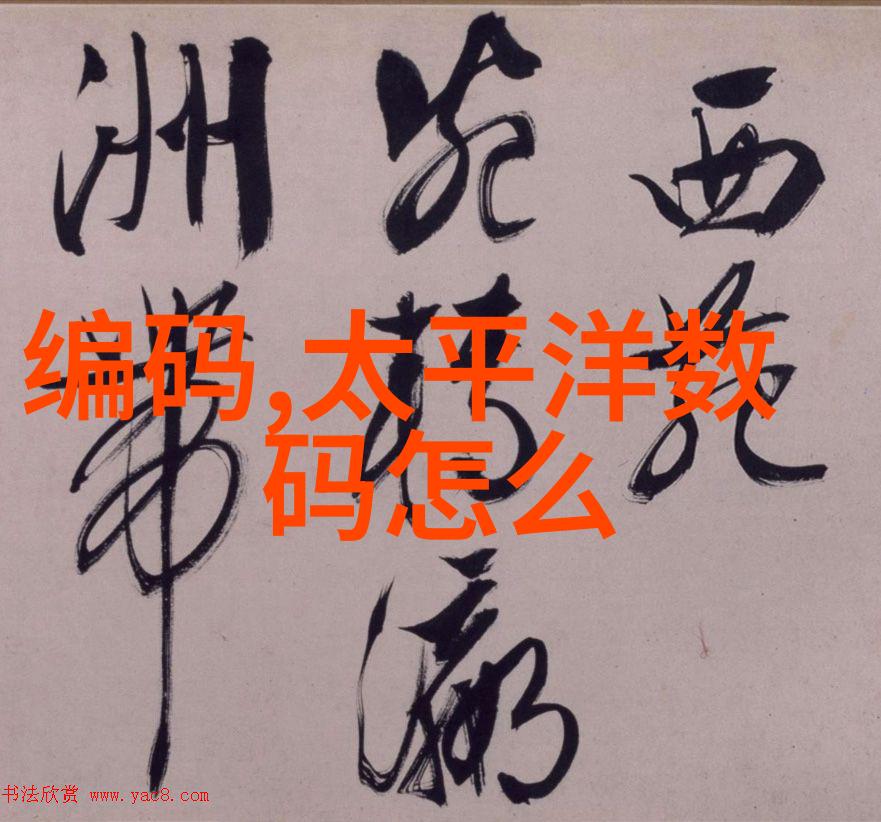 编码,太平洋数
码怎么
西苑
瀛
洲帶
书法欣赏 www.yac8.com